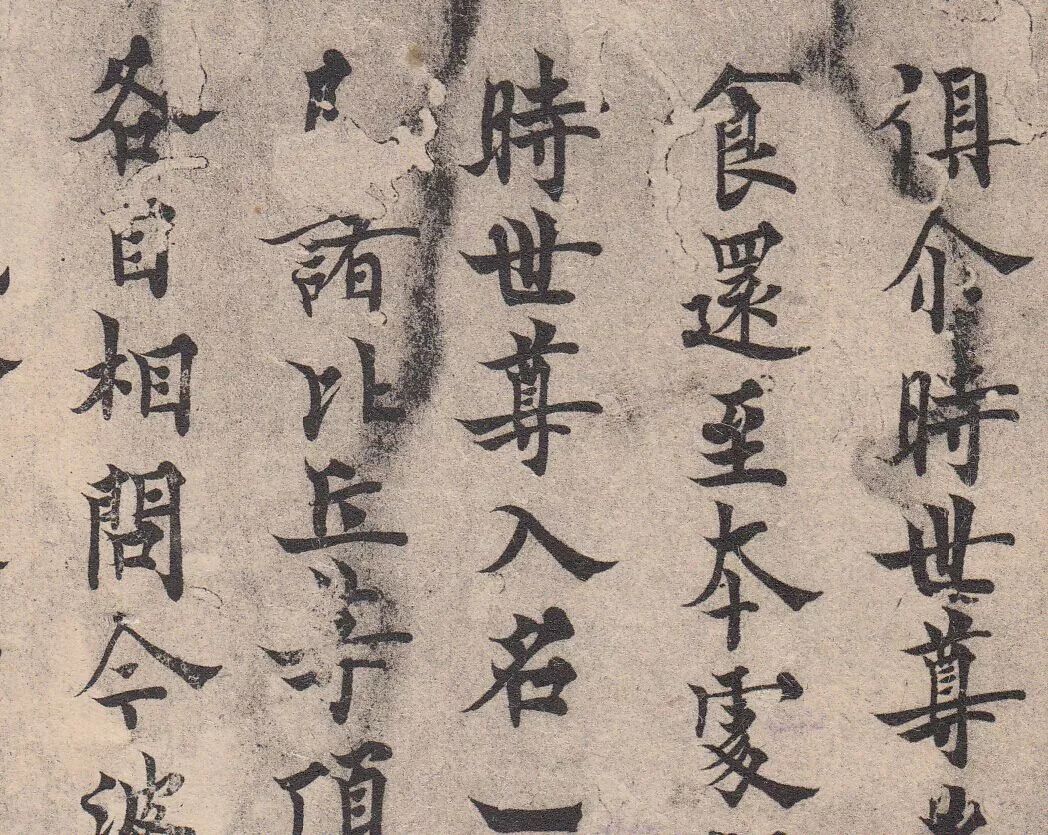 俱尒時世尊
食還至本處
時世尊入名一
諸比丘等頂
各自相問今波